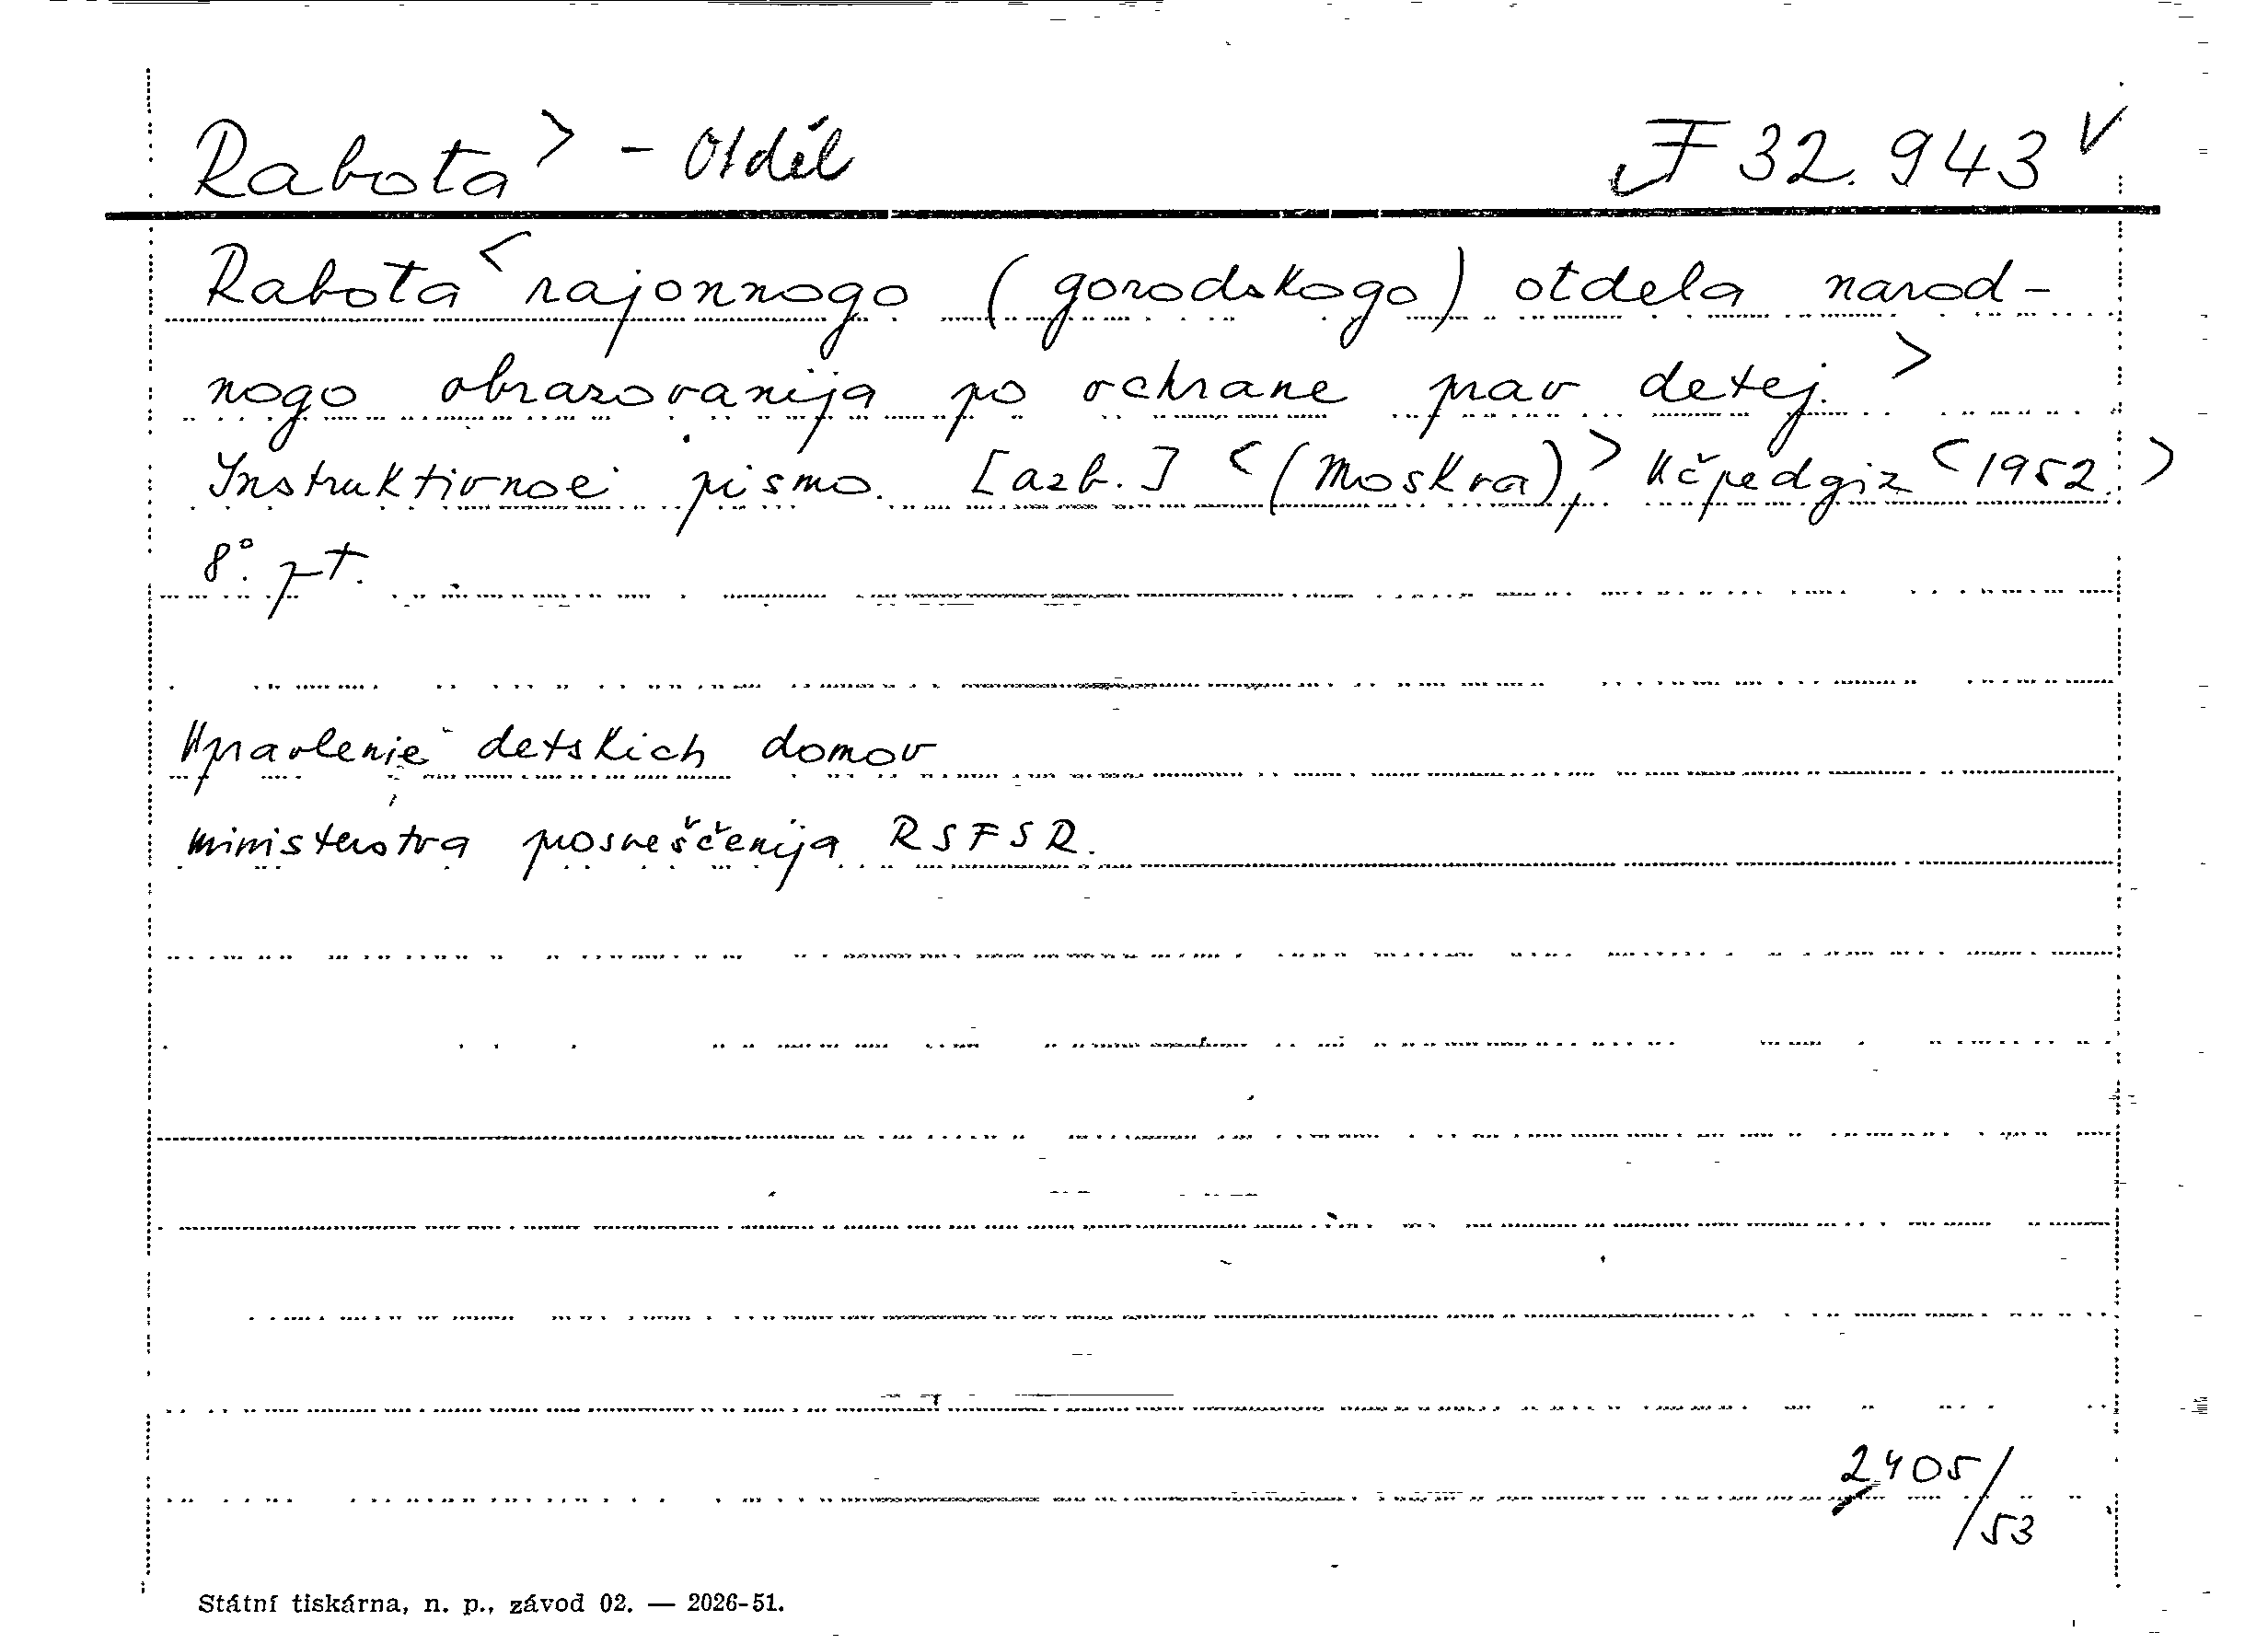 Rabota> - Otděl F 32.943 v
Rabota< rajonnogo (gorodskogo) otdela narod-
nogo obrazovanija po ochrane prav detej.>
Instruktivnoei pismo. [azb.] <(Moskva),> Učpedgiz <1952.>
8°. pt.
Upravlenie detskich domov
ministerstva prosveščenija RSFSR.
2405/53
Státní tiskárna, n. p., závod 02. — 2026-51.